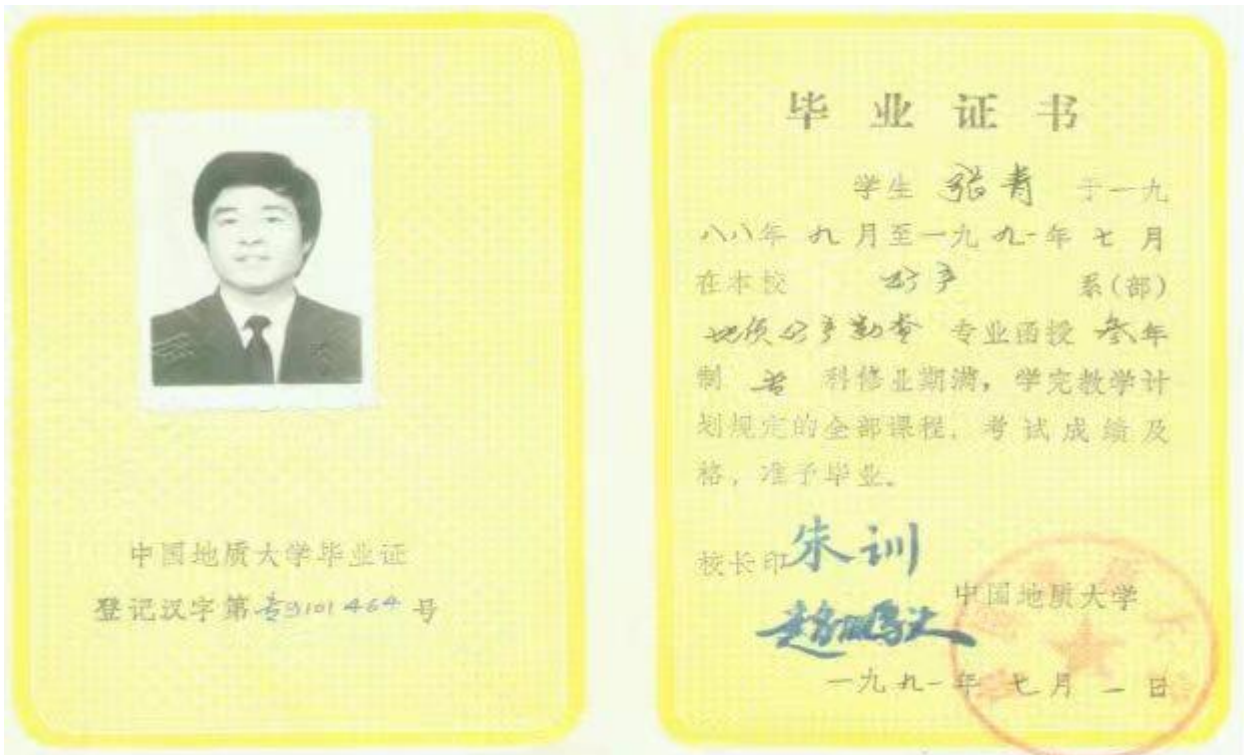 中国地质大学毕业证
登记汉字第专9101464号
毕业证书
学生 张青 于一九
八八年 九 月至一九九一年 七 月
在本校 矿产 系(部)
地质矿产勘查 专业函授 叁年
制 专 科修业期满，学完教学计
划规定的全部课程，考试成绩及
格，准予毕业。
校长印 朱训
中国地质大学
赵鹏大
一九九一年 七月 一日